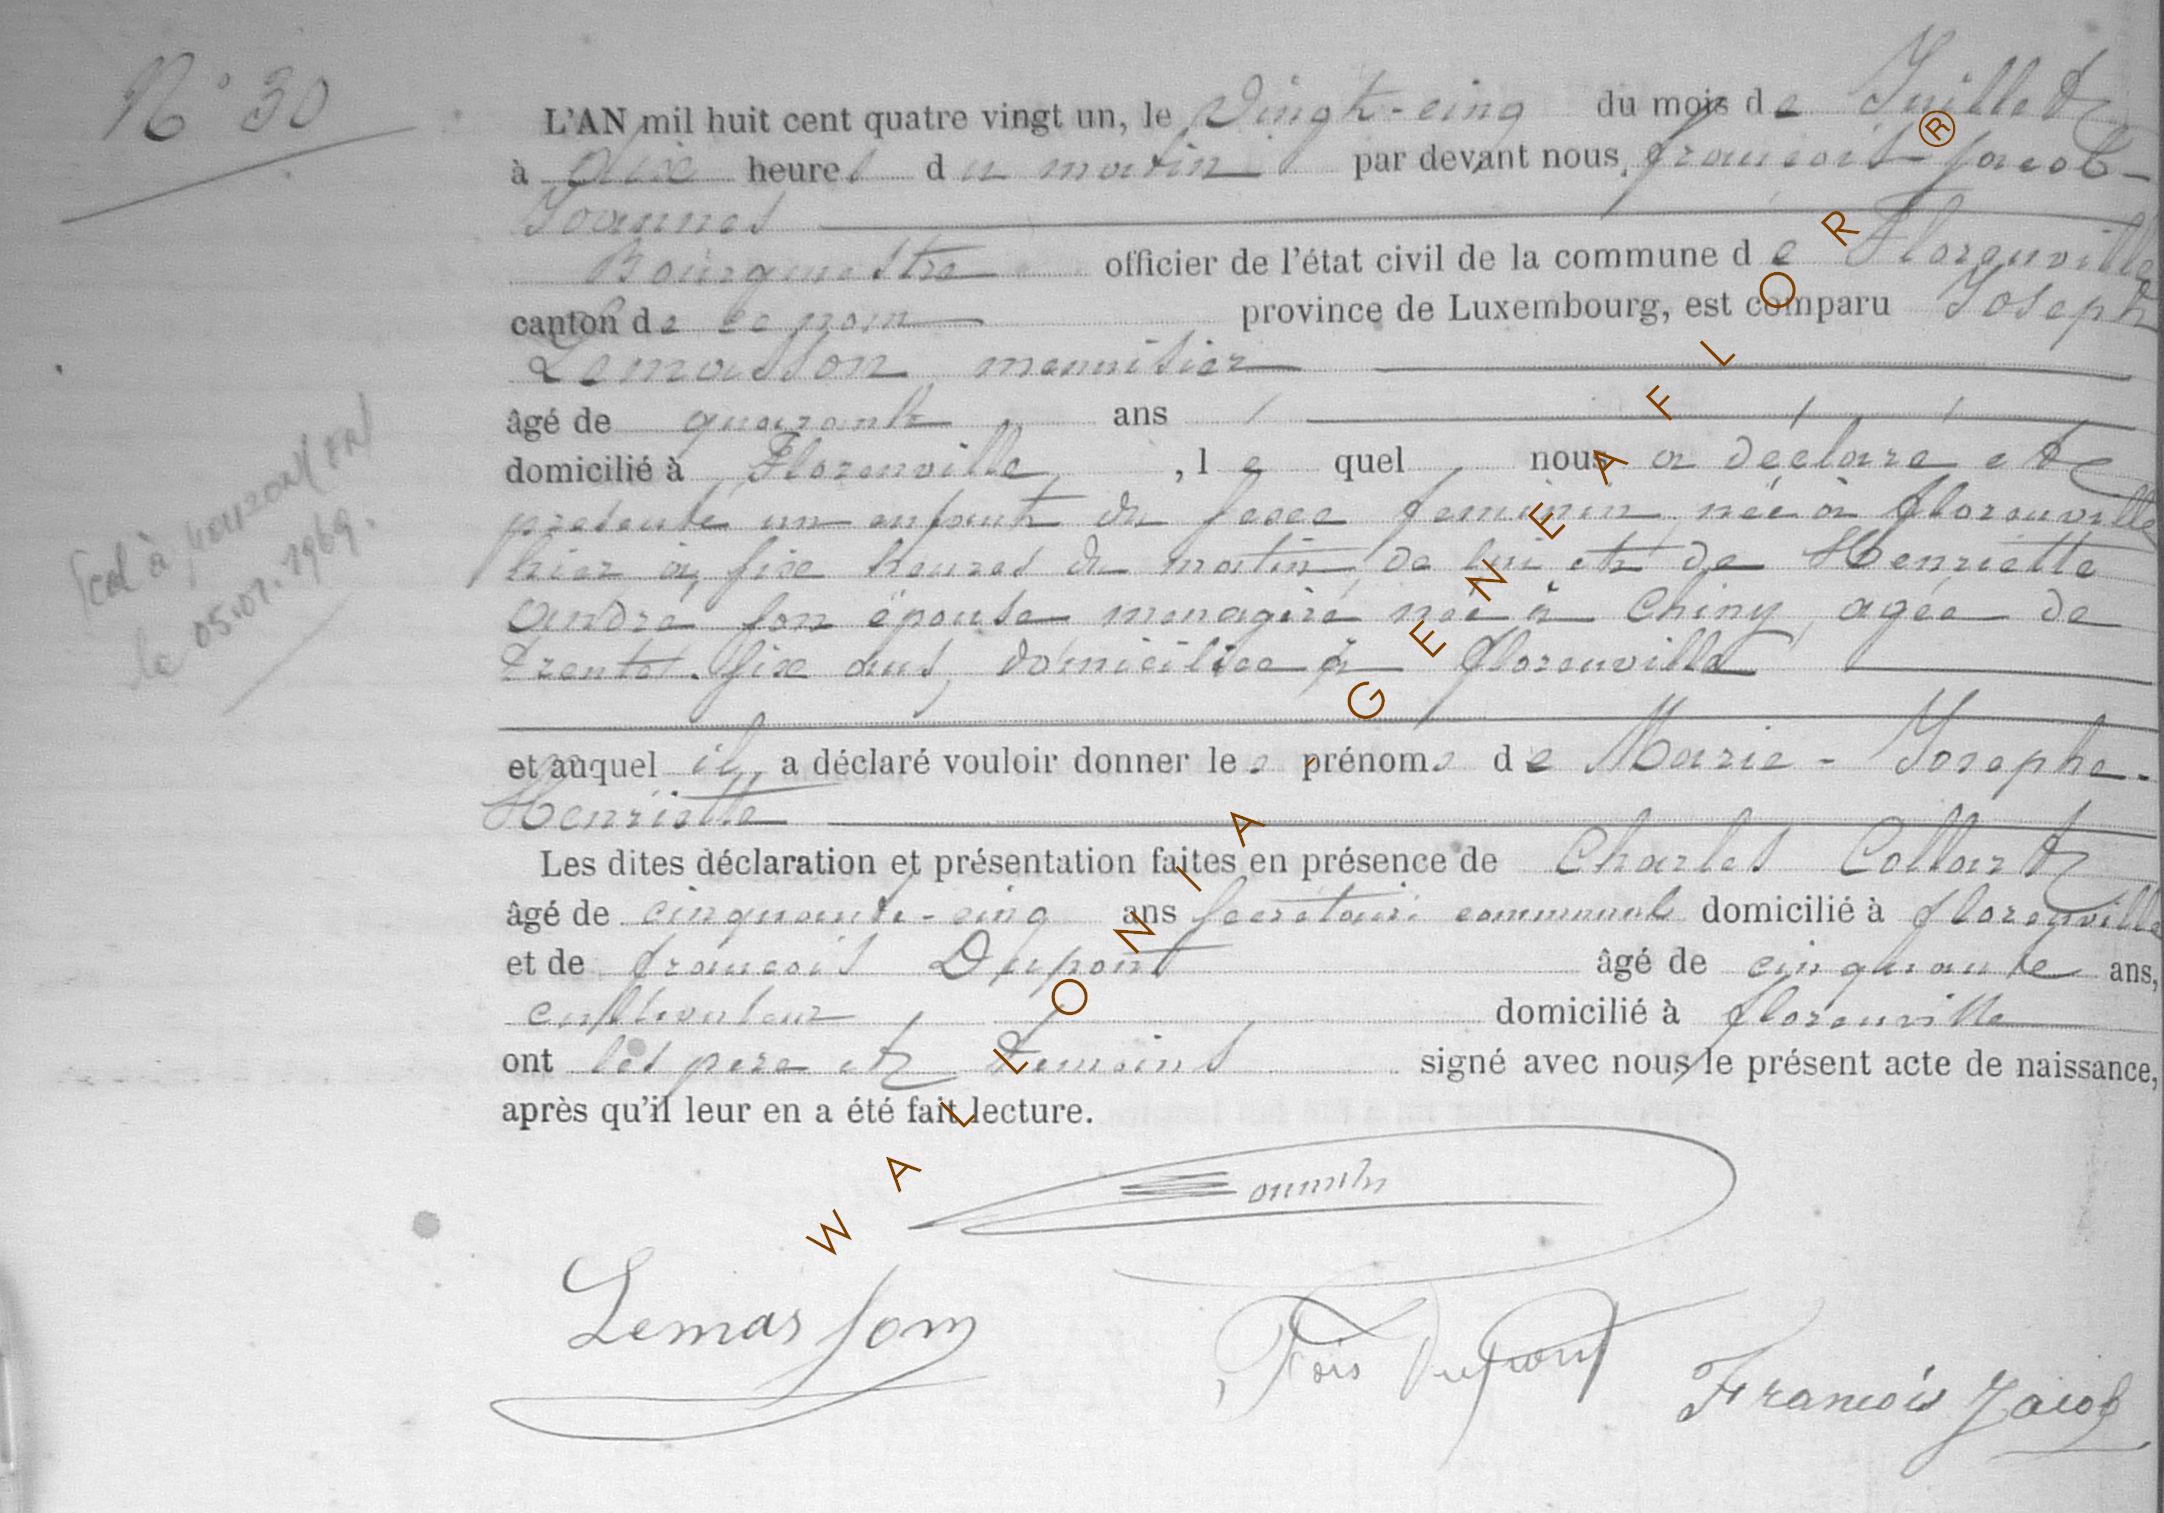 N° 30
L'AN mil huit cent quatre vingt un, le Vingt-cinq du mois de Juillet
à dix heures du matin par devant nous, françois-Jacob-
Joannes
Bourgmestre officier de l'état civil de la commune de Florenville
canton de ce nom province de Luxembourg, est comparu Joseph
Lemasson menuisier
âgé de quarante ans
domicilié à Florenville, lequel nous a déclaré et
présenté un enfant du sexe feminin née à florenville
hier à six heures du matin de lui et de Henriette
André son épouse menagère née à Chiny, agée de
trente-six ans, domiciliée à florenville
et auquel il a déclaré vouloir donner les prénoms de Marie-Josephe-
Henriette
Les dites déclaration et présentation faites en présence de Charles Collart
âgé de cinquante-cinq ans secrétaire communal domicilié à florenville
et de françois Dupont âgé de cinquante ans,
cultivateur domicilié à florenville
ont les pere et temoins signé avec nous le présent acte de naissance,
après qu'il leur en a été fait lecture.
à
le 05.07.1969.
Lemasson
Fçois Dupont
Francois Jacob
WALLONIA GENEAFLOR®